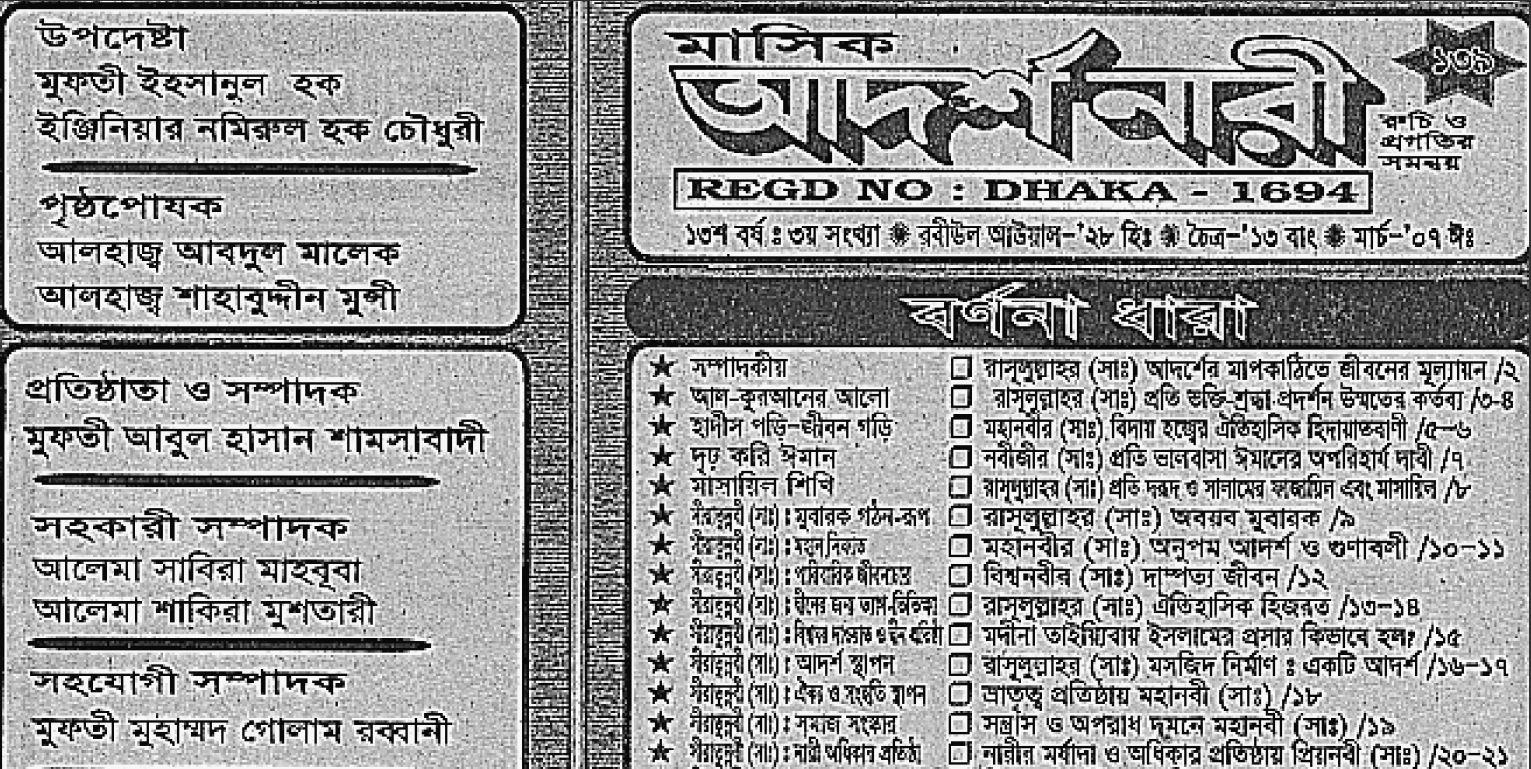 উপদেষ্টা
মুফতী ইহসানুল হক
ইঞ্জিনিয়ার নমিরুল হক চৌধুরী
পৃষ্ঠপোষক
আলহাজ্ব আবদুল মালেক
আলহাজ্ব শাহাবুদ্দীন মুন্সী
প্রতিষ্ঠাতা ও সম্পাদক
মুফতী আবুল হাসান শামসাবাদী
সহকারী সম্পাদক
আলেমা সাবিরা মাহবূবা
আলেমা শাকিরা মুশতারী
সহযোগী সম্পাদক
মুফতী মুহাম্মদ গোলাম রব্বানী
মাসিক
আদর্শ নারী
১৩৯
রুচি ও
প্রগতির
সমন্বয়
REGD NO : DHAKA - 1694
১৩শ বর্ষ ঃ ৩য় সংখ্যা ❋ রবীউল আউয়াল-'২৮ হিঃ ❋ চৈত্র-'১৩ বাং ❋ মার্চ-'০৭ ঈঃ
বর্ণনা ধারা
★ সম্পাদকীয় □ রাসূলুল্লাহর (সাঃ) আদর্শের মাপকাঠিতে জীবনের মূল্যায়ন /২
★ আল-কুরআনের আলো □ রাসূলুল্লাহর (সাঃ) প্রতি ভক্তি-শ্রদ্ধা প্রদর্শন উম্মতের কর্তব্য /৩-৪
★ হাদীস পড়ি-জীবন গড়ি □ মহানবীর (সাঃ) বিদায় হজ্বের ঐতিহাসিক হিদায়াতবাণী /৫-৬
★ দৃঢ় করি ঈমান □ নবীজীর (সাঃ) প্রতি ভালবাসা ঈমানের অপরিহার্য দাবী /৭
★ মাসায়িল শিখি □ রাসূলুল্লাহর (সাঃ) প্রতি দরূদ ও সালামের ফাজায়িল এবং মাসায়িল /৮
★ সীরাতুন্নবী (সাঃ) : মুবারক গঠন-রূপ □ রাসূলুল্লাহর (সাঃ) অবয়ব মুবারক /৯
★ সীরাতুন্নবী (সাঃ) : □ মহানবীর (সাঃ) অনুপম আদর্শ ও গুণাবলী /১০-১১
★ সীরাতুন্নবী (সাঃ) : পারিবারিক □ বিশ্বনবীর (সাঃ) দাম্পত্য জীবন /১২
★ সীরাতুন্নবী (সাঃ) : দ্বীনের জন্য □ রাসূলুল্লাহর (সাঃ) ঐতিহাসিক হিজরত /১৩-১৪
★ সীরাতুন্নবী (সাঃ) : □ মদীনা তাইয়্যিবায় ইসলামের প্রসার কিভাবে হল? /১৫
★ সীরাতুন্নবী (সাঃ) : আদর্শ স্থাপন □ রাসূলুল্লাহর (সাঃ) মসজিদ নির্মাণ : একটি আদর্শ /১৬-১৭
★ সীরাতুন্নবী (সাঃ) : ঐক্য ও সংহতি স্থাপন □ ভ্রাতৃত্ব প্রতিষ্ঠায় মহানবী (সাঃ) /১৮
★ সীরাতুন্নবী (সাঃ) : সমাজ সংস্কার □ সন্ত্রাস ও অপরাধ দমনে মহানবী (সাঃ) /১৯
★ সীরাতুন্নবী (সাঃ) : নারী অধিকার প্রতিষ্ঠা □ নারীর মর্যাদা ও অধিকার প্রতিষ্ঠায় প্রিয়নবী (সাঃ) /২০-২১